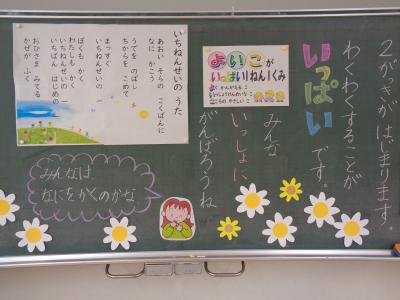 2がっきが はじまります。
わくわくすることが
いっぱい です。
みんな
いっしょに
がんばろうね
よいこが
いっぱい!1ねん1くみ
よく かんがえるこ
いっしょうけんめいなこ
こころの やさしいこ
いちねんせいの うた
あおい そらの こくばんに
なに かこう
うでを のばし
ちからを こめて
まっすぐ
いちねんせいの 一
ぼくも かくぞ
わたしも かく
いちねんせいの 一
いちばん はじめの 一
おひさま みてる
かぜが ふく
みんなは
なにをかくのかな